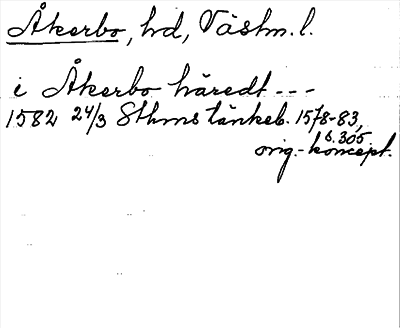 Åkerbo, hd, Västm. l.
i Åkerbo häredt ---
1582 24/3 Sthms tänkeb. 1578-83,
s. 305.
orig.-koncept.